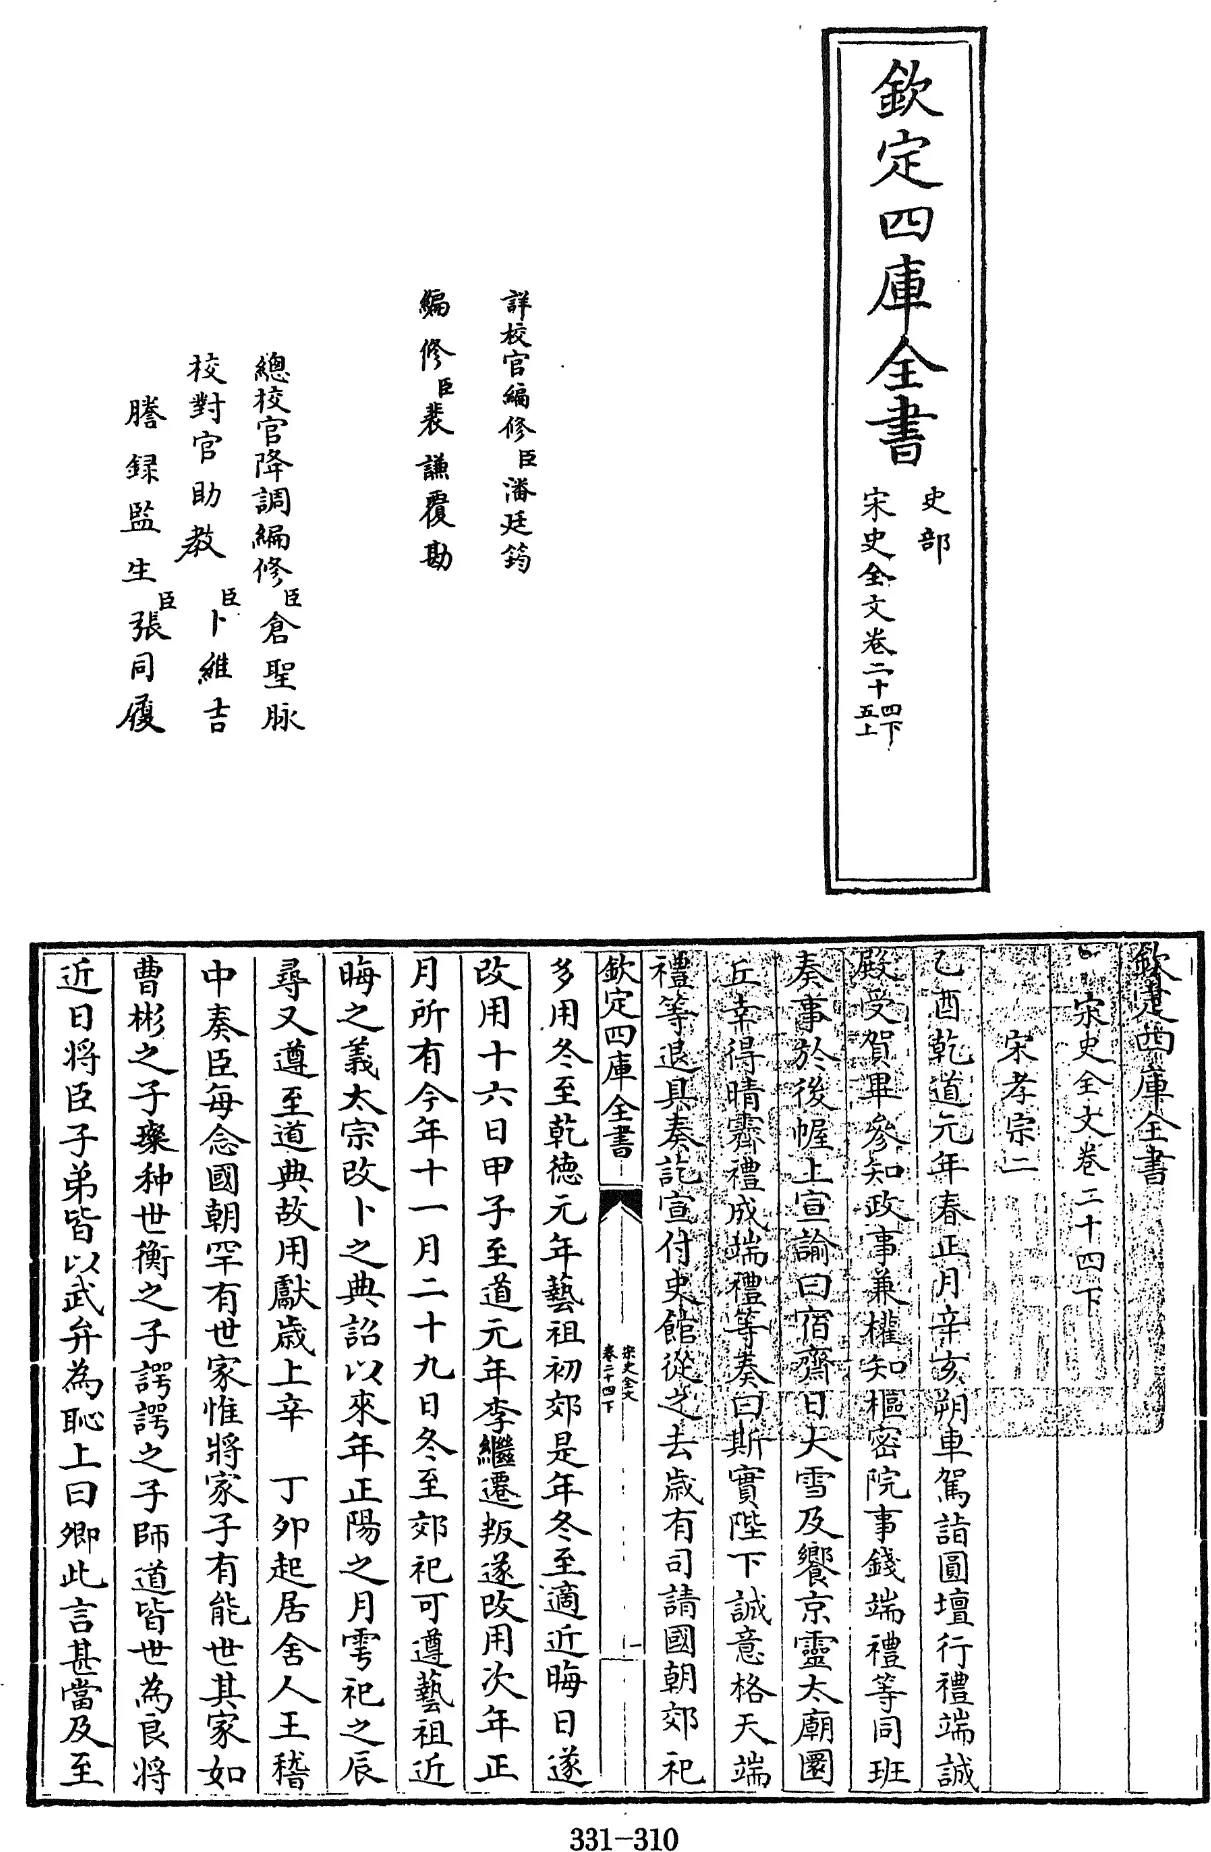 欽定四庫全書
史部
宋史全文卷二十四下
五上
詳校官編修臣潘廷筠
編修臣裴謙覆勘
總校官降調編修臣倉聖脉
校對官助教臣卜維吉
謄録監生臣張同履
欽定四庫全書
宋史全文卷二十四下
宋孝宗二
乙酉乾道元年春正月辛亥朔車駕詣圓壇行禮端誠
殿受賀畢參知政事兼權知樞密院事錢端禮等同班
奏事於後幄上宣諭曰宿齋日大雪及饗景靈太廟圜
丘幸得晴霽禮成端禮等奏曰斯實陛下誠意格天端
禮等退具奏訖宣付史館從之去歳有司請國朝郊祀
欽定四庫全書
宋史全文
卷二十四下
一
多用冬至乾德元年藝祖初郊是年冬至適近晦日遂
改用十六日甲子至道元年李繼遷叛遂改用次年正
月所有今年十一月二十九日冬至郊祀可遵藝祖近
晦之義太宗改卜之典詔以來年正陽之月雩祀之辰
尋又遵至道典故用獻歳上辛 丁卯起居舍人王稽
中奏臣每念國朝罕有世家惟將家子有能世其家如
曹彬之子璨种世衡之子諤諤之子師道皆世為良將
近日将臣子弟皆以武弁為恥上曰卿此言甚當及至
331-310